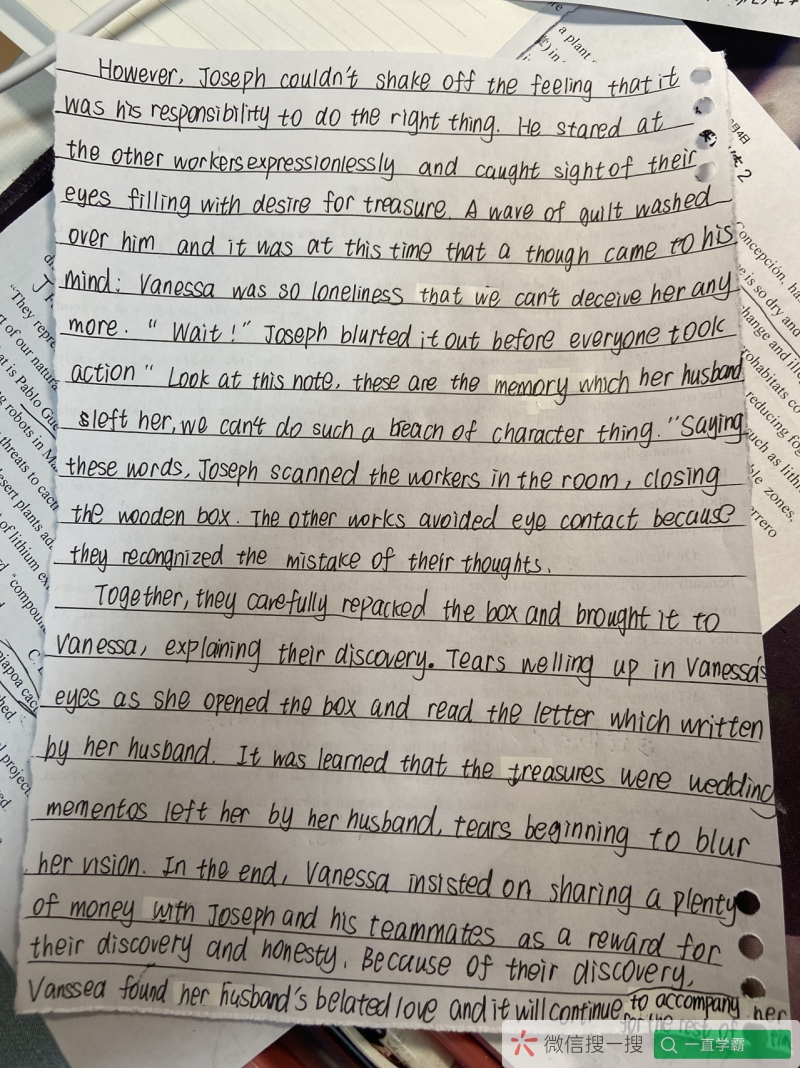 However, Joseph couldn't shake off the feeling that it
was his responsibility to do the right thing. He stared at
the other workers expressionlessly and caught sight of their
eyes filling with desire for treasure. A wave of guilt washed
over him and it was at this time that a though came to his
mind: Vanessa was so loneliness that we can't deceive her any
more. " Wait!" Joseph blurted it out before everyone took
action " Look at this note, these are the memory which her husband
sleft her, we can't do such a beach of character thing. "Saying
these words, Joseph scanned the workers in the room, closing
the wooden box. The other works avoided eye contact because
they recongnized the mistake of their thoughts.
Together, they carefully repacked the box and brought it to
Vanessa, explaining their discovery. Tears welling up in Vanessa's
eyes as she opened the box and read the letter which written
by her husband. It was learned that the treasures were wedding
mementos left her by her husband, tears beginning to blur
her vision. In the end, Vanessa insisted on sharing a plenty
of money with Joseph and his teammates as a reward for
their discovery and honesty. Because of their discovery,
Vanssea found her husband's belated love and it will continue to accompany her
for the rest of
微信搜一搜
一直学霸
a plant
2
Concepción, ha
e is so dry and
change and ill
rohabitats co
reducing fog
such as lith
ble zones,
errero
"They repre
rt of our natura
at is Pablo Gue
g robots in M
threats to cact
esert plants ad
of lithium ex
"compoun
C.
iapoa cac
hed.
l project
red.